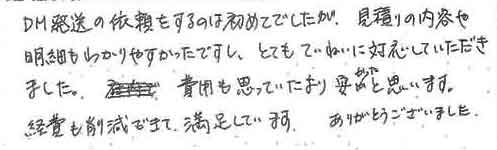 DM発送の依頼をするのは初めてでしたが、見積りの内容や
明細もわかりやすかったですし、とてもていねいに対応していただき
ました。費用も思っていたより安かったと思います。
経費も削減できて、満足しています。 ありがとうございました。